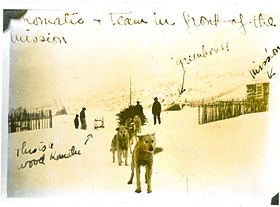 Komatic + Team in front of the
mission
greenhouse
mission
This is a
wood Komatic